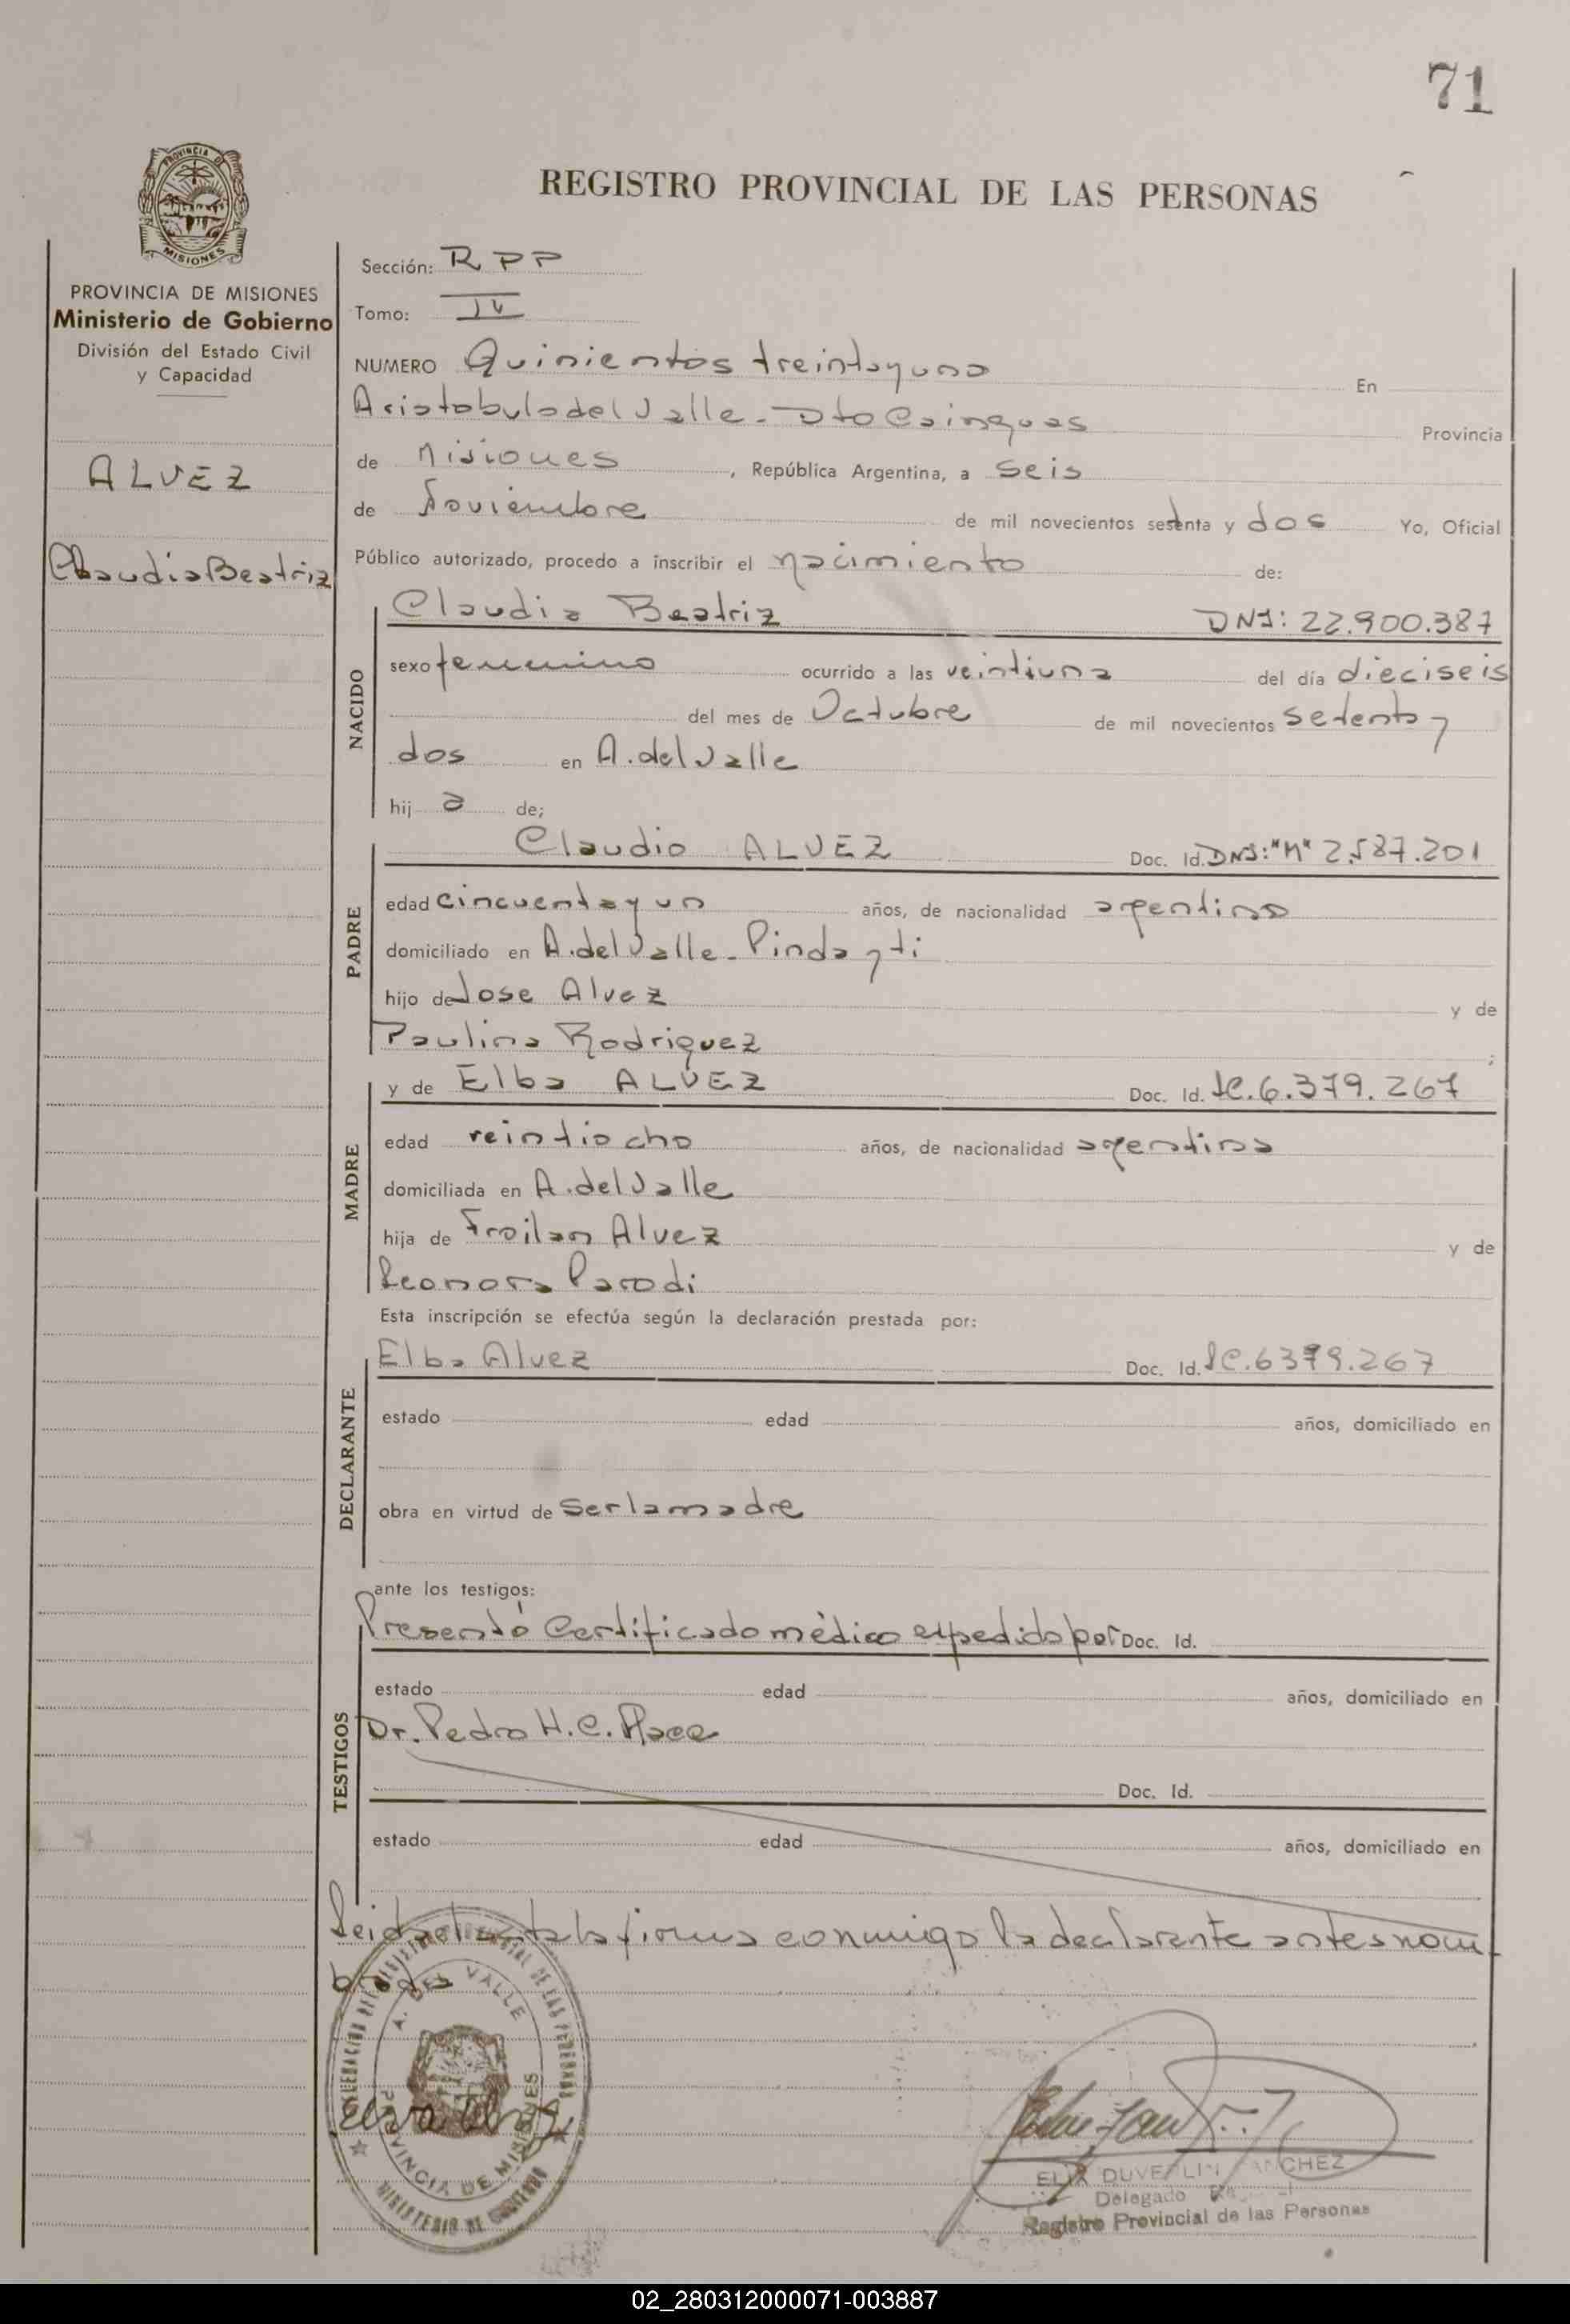 71
PROVINCIA DE
MISIONES
REGISTRO PROVINCIAL DE LAS PERSONAS
PROVINCIA DE MISIONES
Ministerio de Gobierno
División del Estado Civil
y Capacidad
ALVEZ
Claudia Beatriz
Sección: R P P
Tomo: IV
NUMERO Quinientos treinta y uno En
Aristobulo del Valle - Dto Cainguas Provincia
de Misiones, República Argentina, a seis
de Noviembre de mil novecientos setenta y dos Yo, Oficial
Público autorizado, procedo a inscribir el nacimiento de:
NACIDO
Claudia Beatriz DNI: 22.900.387
sexo femenino ocurrido a las veintiuna del día dieciseis
del mes de Octubre de mil novecientos setenta y
dos en A. del Valle
hij a de;
PADRE
Claudio ALVEZ Doc. Id. DNI: "M" 2.587.201
edad cincuenta y un años, de nacionalidad argentino
domiciliado en A. del Valle - Pindayti
hijo de Jose Alvez y de
Paulina Rodriguez ;
MADRE
y de Elba ALVEZ Doc. Id. LC. 6.379.267
edad veintiocho años, de nacionalidad argentina
domiciliada en A. del Valle
hija de Froilan Alvez y de
Leonora Parodi
Esta inscripción se efectúa según la declaración prestada por:
DECLARANTE
Elba Alvez Doc. Id. LC. 6379.267
estado edad años, domiciliado en
obra en virtud de ser la madre
ante los testigos:
TESTIGOS
Presentó Certificado médico expedido por Doc. Id.
estado edad años, domiciliado en
Dr. Pedro H. C.
Doc. Id.
estado edad años, domiciliado en
Leida el acta la firma conmigo la declarante antes nom-
brada
A. DEL VALLE
PROVINCIA DE MISIONES
MINISTERIO DE GOBIERNO
SANCHEZ
Delegado
Registro Provincial de las Personas
02_280312000071-003887